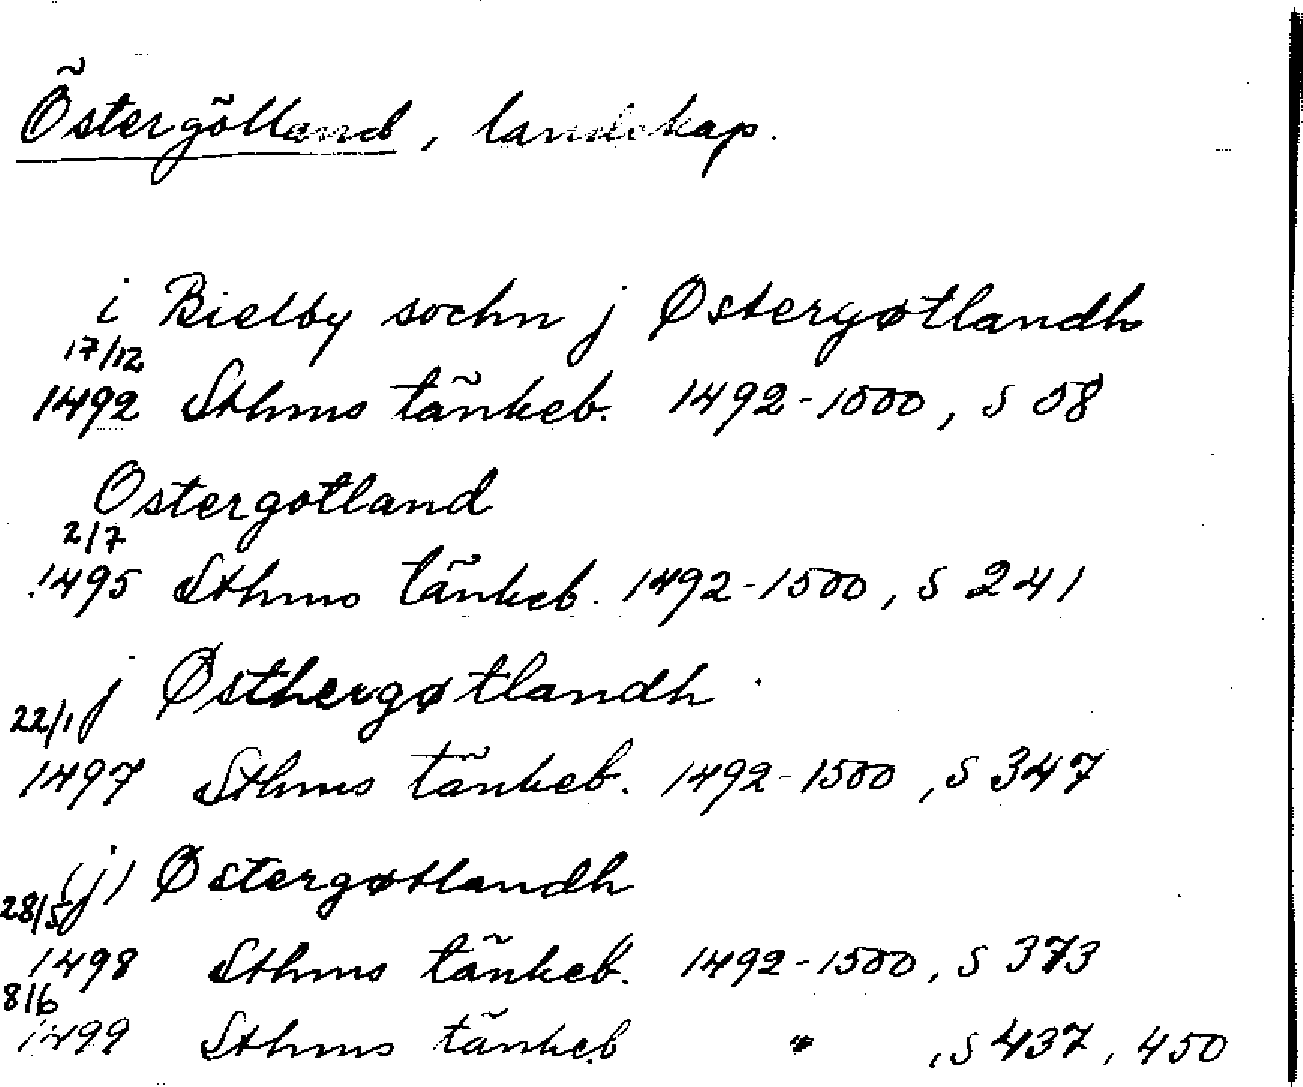 Östergötland, landskap.
i Bielby sochn j Østergøtlandh
17/12
1492 Sthms tänkeb. 1492-1500, s 58
Ostergotland
2/7
1495 Sthms tänkeb. 1492-1500, s 241
j Østhergøtlandh
22/1
1497 Sthms tänkeb. 1492-1500, s 347
(j) Østergøtlandh
28/5
1498 Sthms tänkeb. 1492-1500, s 373
8/6
1499 Sthms tänkeb " , s 437, 450